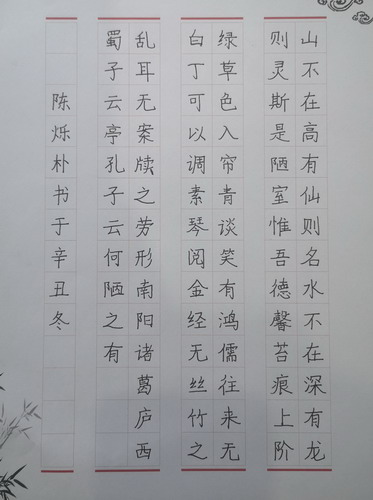 山不在高有仙则名水不在深有龙
则灵斯是陋室惟吾德馨苔痕上阶
绿草色入帘青谈笑有鸿儒往来无
白丁可以调素琴阅金经无丝竹之
乱耳无案牍之劳形南阳诸葛庐西
蜀子云亭孔子云何陋之有
陈烁朴书于辛丑冬